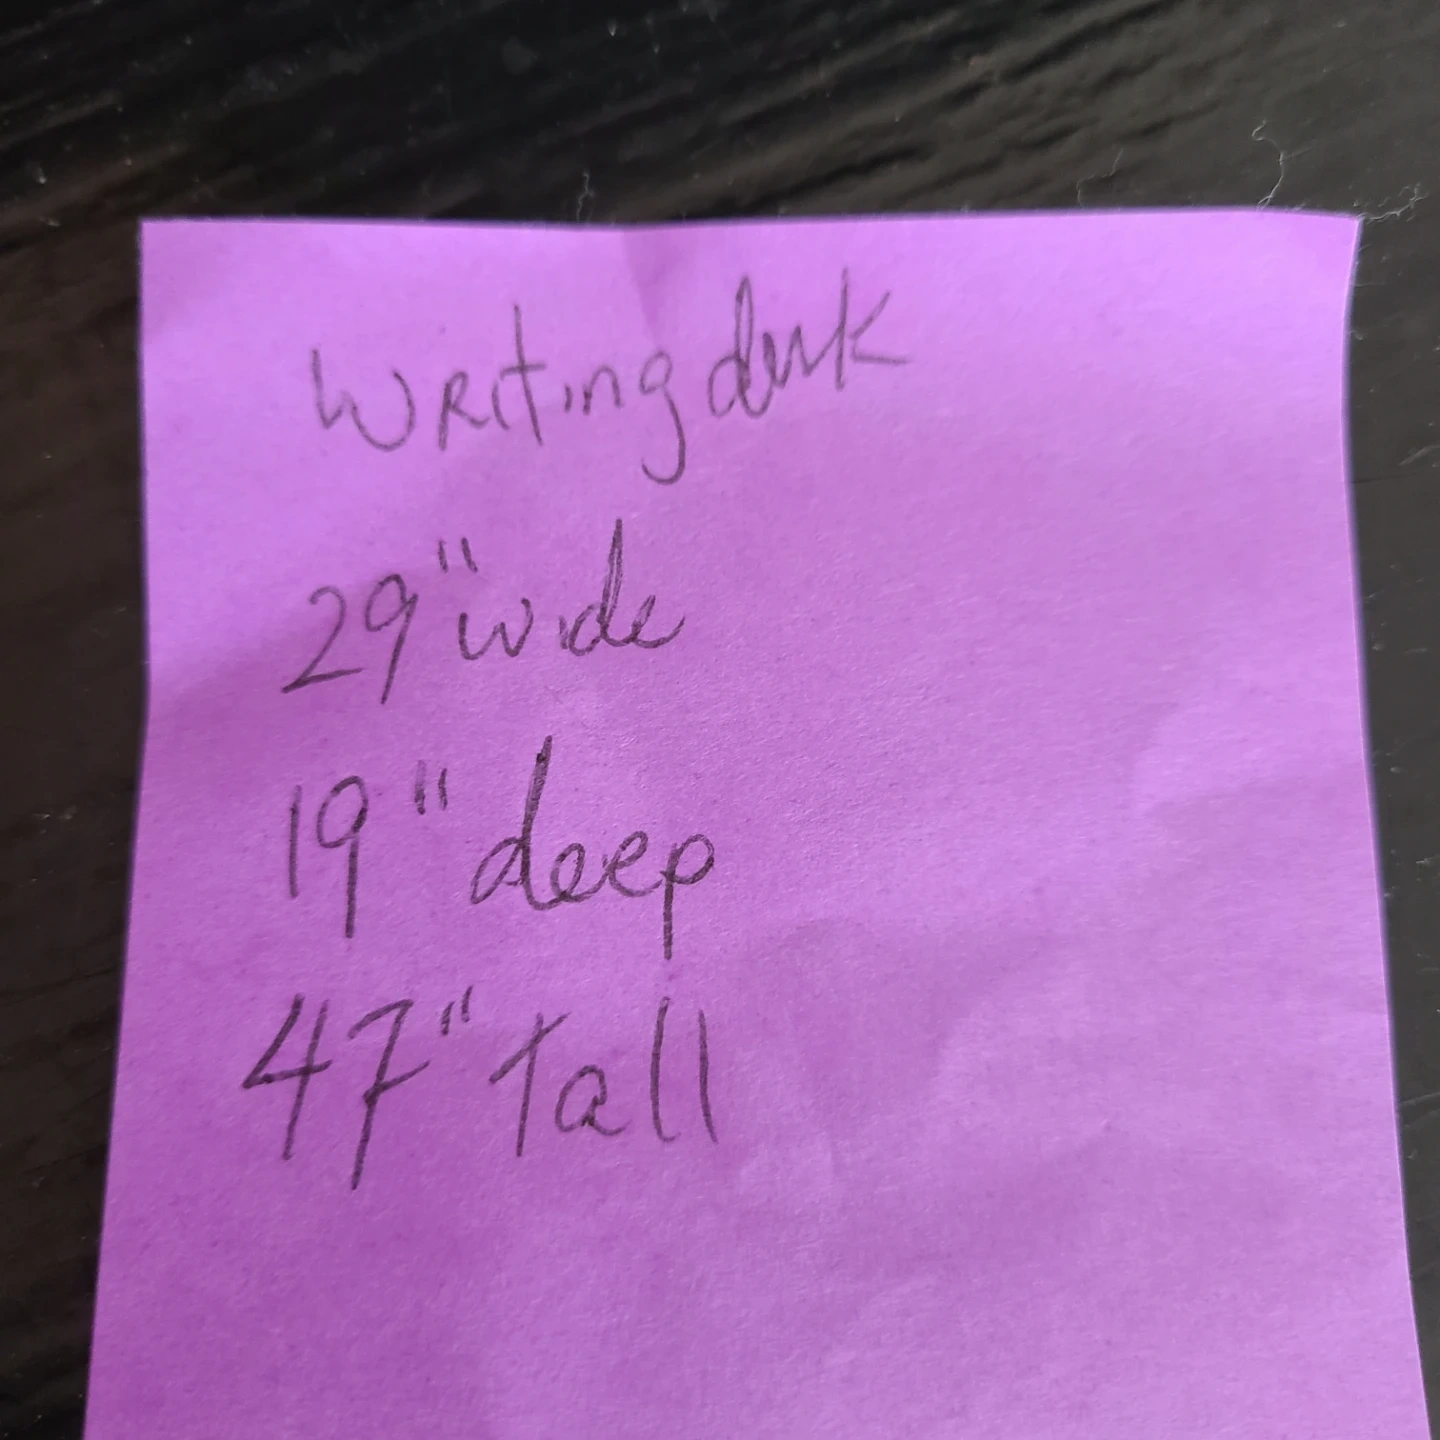 Writing desk
29" wide
19" deep
47" Tall